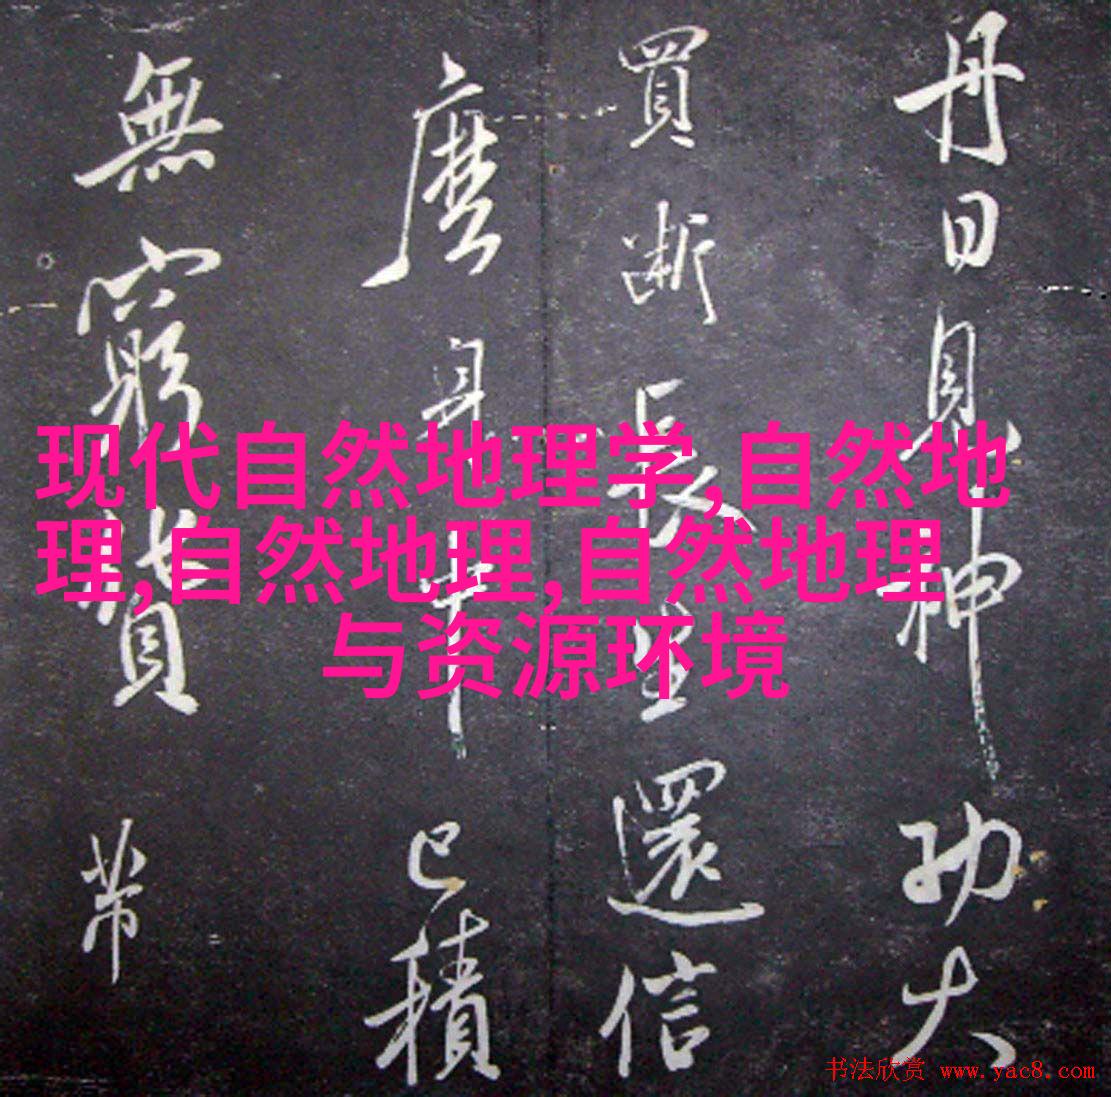 丹日見神功大
買斷長生還信
麼身中已積
無窮帶
现代自然地理学,自然地
理,自然地理,自然地理
与资源环境
书法欣赏 www.yac8.com